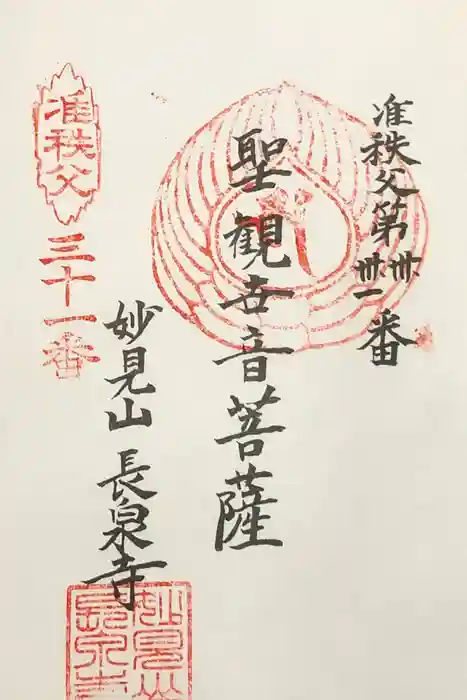 准秩父第卅卅一番
聖観世音菩薩
妙見山 長泉寺
准秩父
三十一番
妙見山
長泉寺